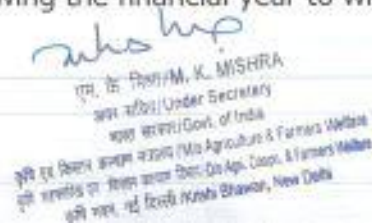 ing the financial year to
एम. के. मिश्रा/M. K. MISHRA
अवर सचिव/Under Secretary
भारत सरकार/Govt. of India
कृषि एवं किसान कल्याण मंत्रालय/M/o Agriculture & Farmers Welfare
कृषि सहकारिता एवं किसान कल्याण विभाग/D/o Agri. Coopn. & Farmers Welfare
कृषि भवन, नई दिल्ली/Krishi Bhawan, New Delhi